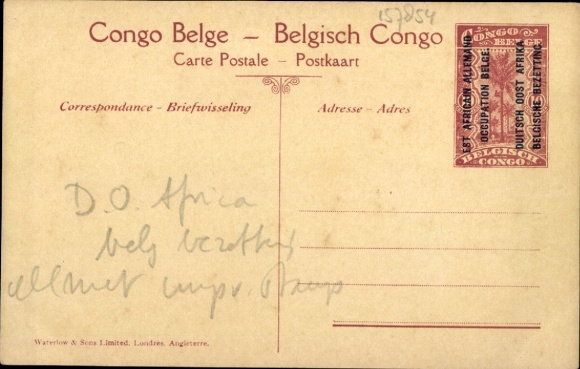 157854
Congo Belge – Belgisch Congo
Carte Postale – Postkaart
Correspondance – Briefwisseling
Adresse – Adres
CONGO
BELGE
EST AFRICAIN ALLEMAND
OCCUPATION BELGE.
DUITSCH OOST AFRIKA
BELGISCHE BEZETTING.
BELGISCH
CONGO
D.O. Africa
belg bezetting
all met impr. stamp
Waterlow & Sons Limited, Londres, Angleterre.